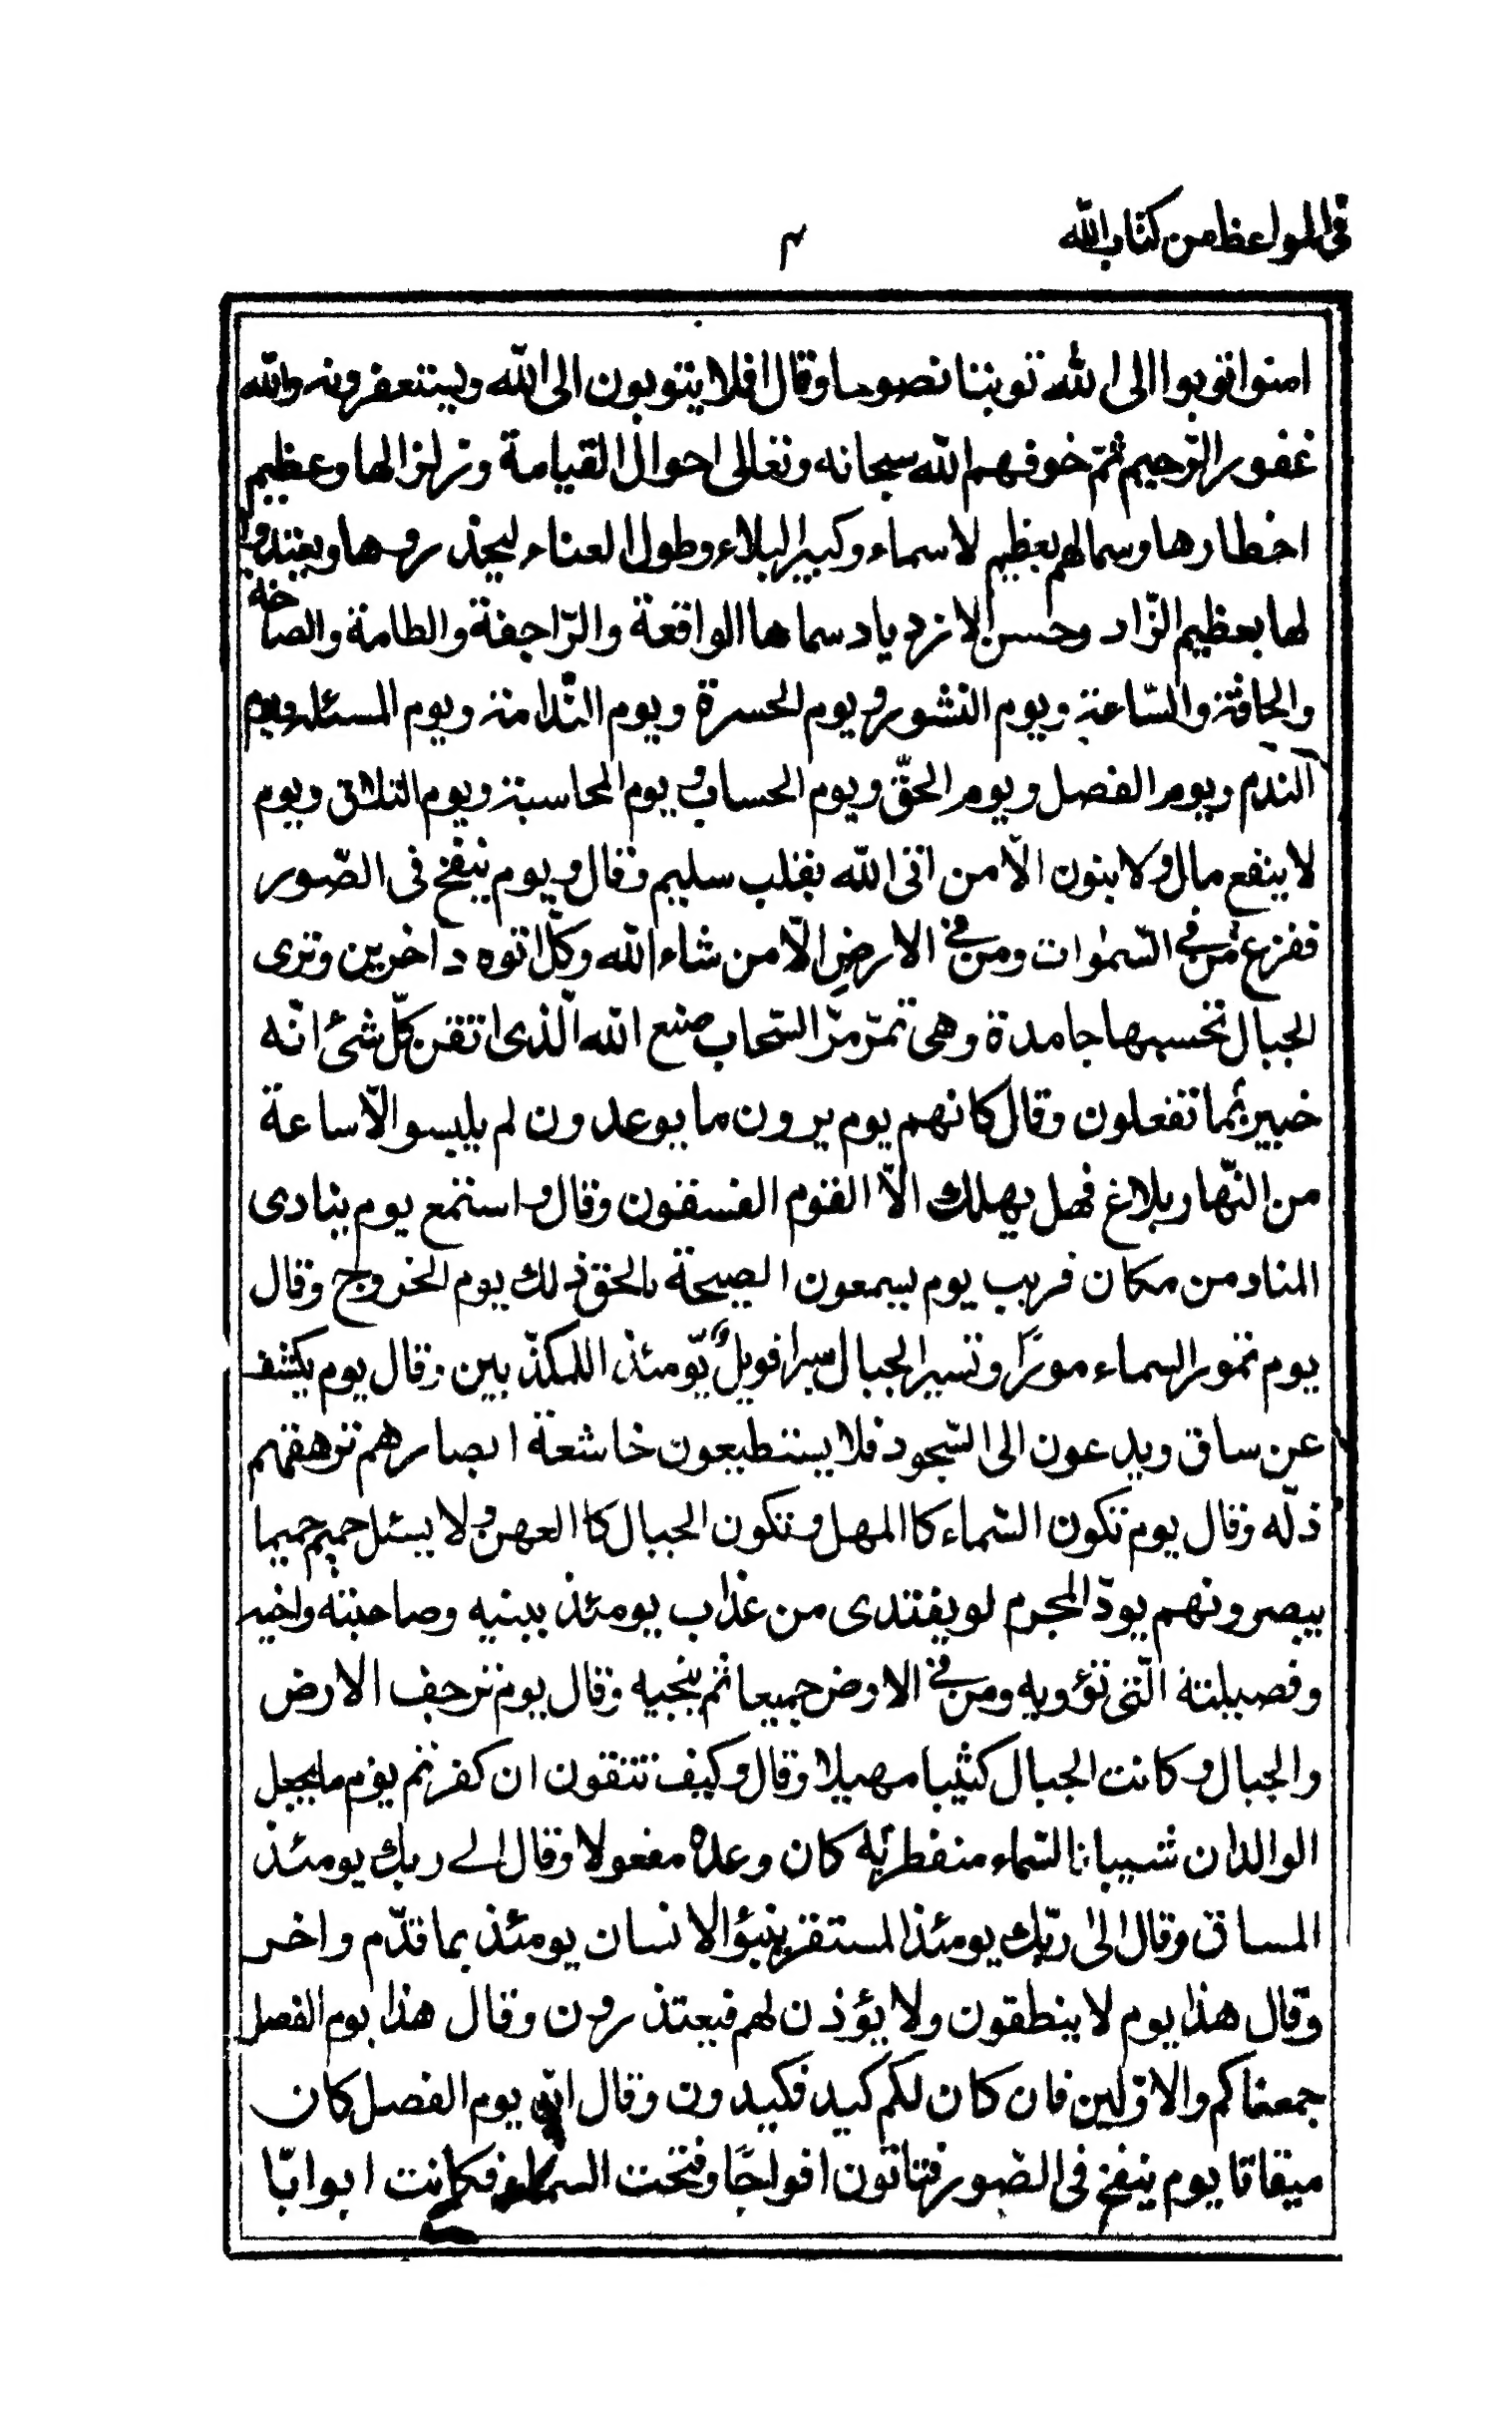 فى المواعظ من كتاب الله
٣
امنوا توبوا الى الله توبتا نصوحا وقال افلا يتوبون الى الله ويستغفرونه والله
غفور الرّحيم ثمّ خوفهم الله سبحانه وتعالى احوال القيامة وزلزالها وعظيم
اخطارها وسمالهم بعظيم لاسماء وكبير البلاء وطول العناء ليحذروها ويعتدوا
لها بعظيم الزّاد وحسن الازدياد سماها الواقعة والرّاجفة والطامة والصاخة
والحاقة والسّاعة ويوم النشور ويوم الحسرة ويوم النّدامة ويوم المسئله ويوم
الندم ويوم الفصل ويوم الحقّ ويوم الحساب ويوم المحاسبة ويوم التلاق ويوم
لا ينفع مال ولا بنون الّا من اتى الله بقلب سليم وقال ويوم ينفخ فى الصّور
ففزع من في السّموات ومن في الارض الّا من شاء الله وكلّ اتوه داخرين وترى
الجبال تحسبها جامدة وهى تمرّ مرّ السّحاب صنع الله الّذى اتقن كلّ شئ انّه
خبير بما تفعلون وقال كانهم يوم يرون ما يوعدون لم يلبسو الّا ساعة
من النّهار بلاغ فهل يهلك الّا القوم الفسقون وقال واستمع يوم ينادى
المناد من مكان قريب يوم يسمعون الصيحة بالحق ذلك يوم الخروج وقال
يوم تمور السماء مورًا وتسير الجبال سيرا فويل يّومئذ اللمكذّبين وقال يوم يكشف
عن ساق ويدعون الى السّجود فلا يستطيعون خاشعة ابصارهم ترهقهم
ذلّه وقال يوم تكون السّماء كا المهل وتكون الجبال كا العهن ولا يسئل حميم حميما
يبصرونهم يودّ المجرم لو يفتدى من عذاب يومئذ ببنيه وصاحبته واخيه
وفصيلته الّتى تؤويه ومن في الارض جميعا ثم ينجيه وقال يوم ترجف الارض
والجبال وكانت الجبال كثيبا مهيلا وقال وكيف تتقون ان كفرتم يوم ما يجعل
الوالدان شيبانا السّماء منفطر به كان وعده مفعولا وقال الى ربك يومئذ
المساق وقال الى ربّك يومئذ المستقر ينبؤ الانسان يومئذ بما قدّم واخر
وقال هذا يوم لا ينطقون ولا يؤذن لهم فيعتذرون وقال هذا يوم الفصل
جمعناكم والاوّلين فان كان لكم كيد فكيدون وقال انّ يوم الفصل كان
ميقاتا يوم ينفخ فى الصّور فتاتون افواجًا وفتحت السماء فكانت ابوابّا